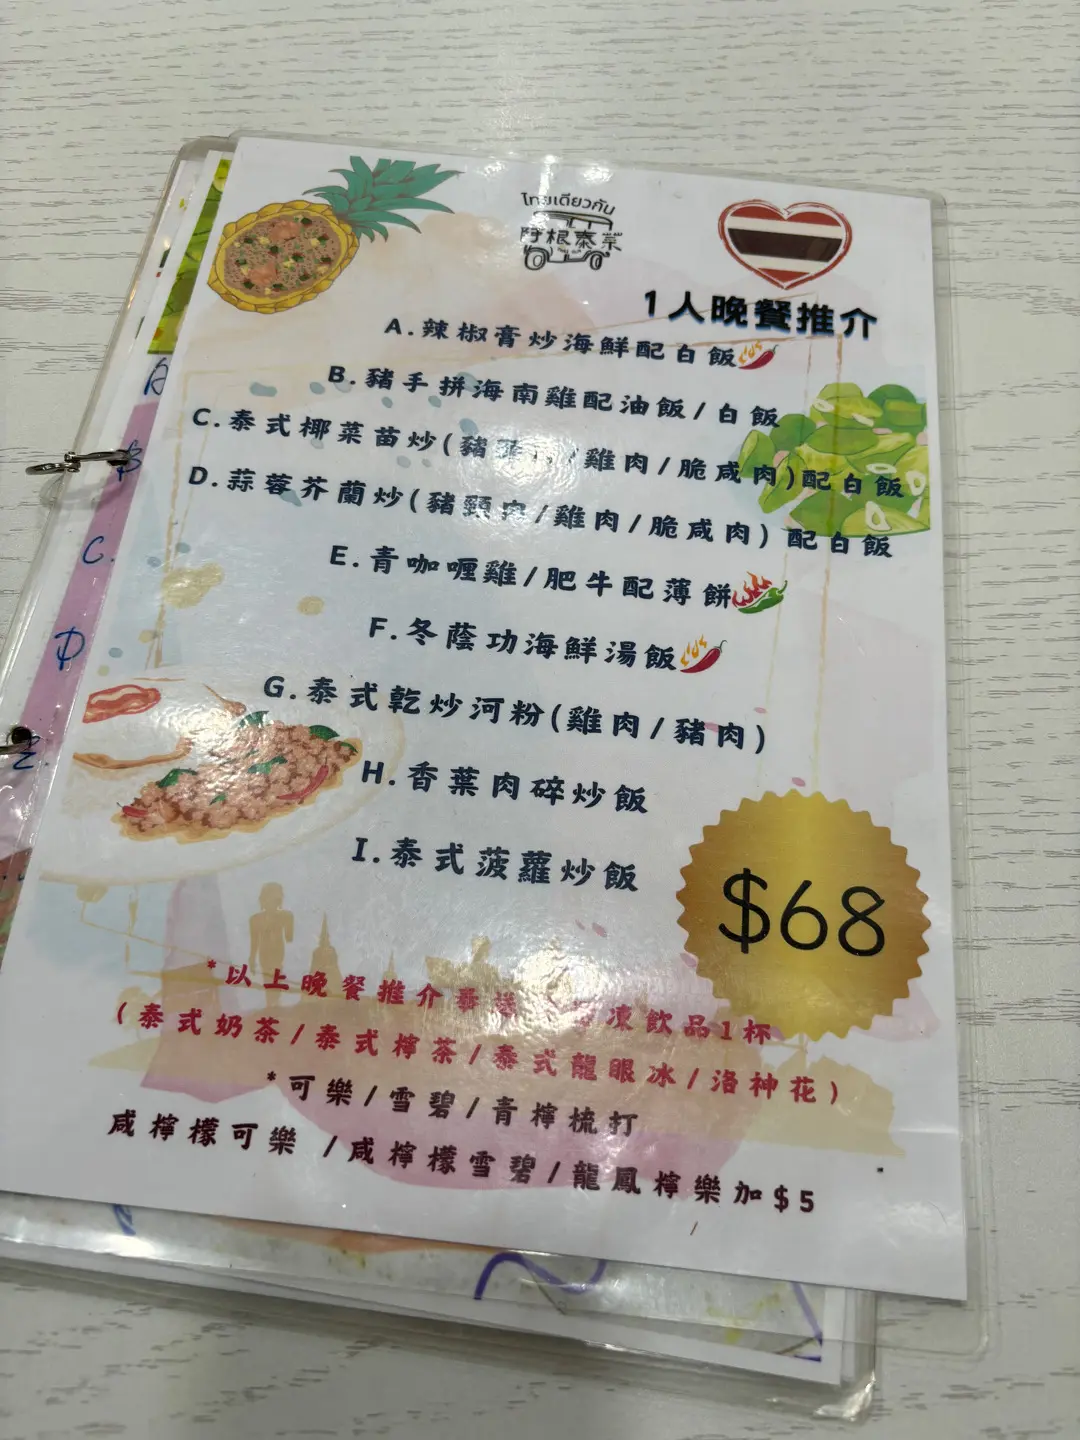 ไทยเดียวกัน
阿根泰菜
1人晚餐推介
A.辣椒膏炒海鮮配白飯
B.豬手拼海南雞配油飯/白飯
C.泰式椰菜苗炒(豬 /雞肉/脆咸肉)配白飯
D.蒜蓉芥蘭炒(豬頸肉/雞肉/脆咸肉)配白飯
E.青咖喱雞/肥牛配薄餅
F.冬蔭功海鮮湯飯
G.泰式乾炒河粉(雞肉/豬肉)
H.香葉肉碎炒飯
I.泰式菠蘿炒飯
$68
*以上晚餐推介 凍飲品1杯
(泰式奶茶/泰式檸茶/泰式龍眼冰/洛神花)
*可樂/雪碧/青檸梳打
咸檸檬可樂 /咸檸檬雪碧/龍鳳檸樂加$5
B
C.
D